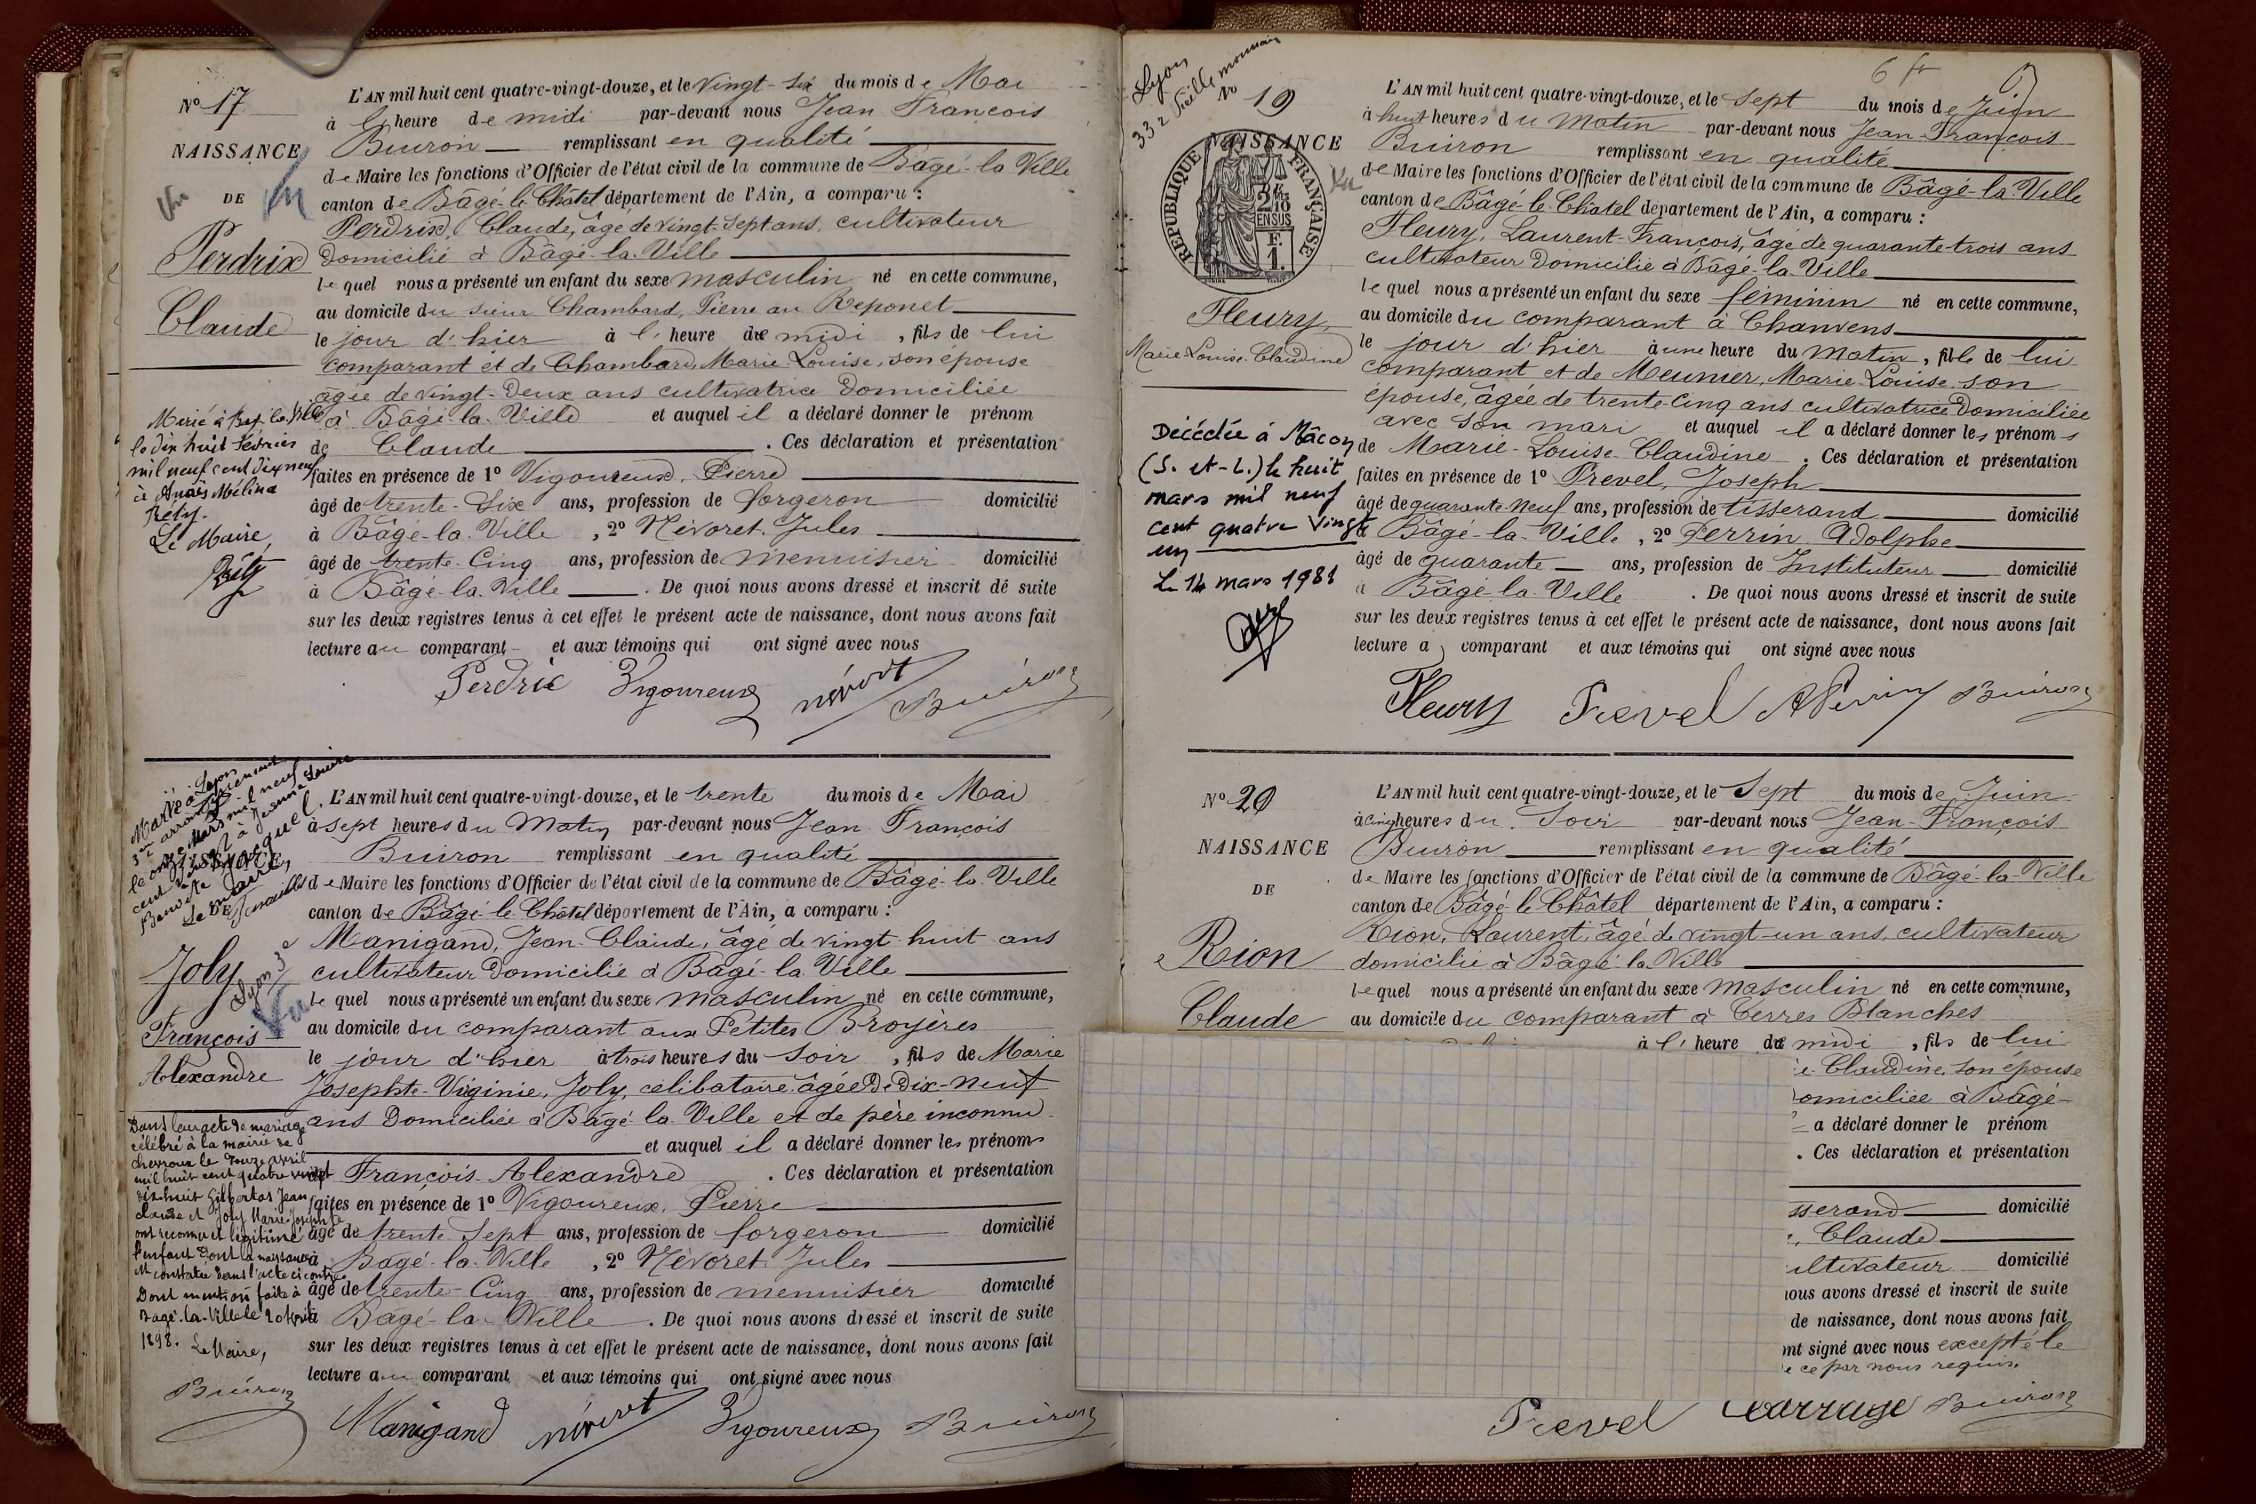 Nº 17
NAISSANCE
DE
Perdrix
Claude
L'AN mil huit cent quatre-vingt-douze, et le vingt-six du mois de Mai
à l' heure de midi par-devant nous Jean François
Buiron remplissant en qualité
de Maire les fonctions d'Officier de l'état civil de la commune de Bâgé-la-Ville
canton de Bâgé-le-Châtel département de l'Ain, a comparu :
Perdrix, Claude, âgé de vingt-sept ans, cultivateur
domicilié à Bâgé-la-Ville
lequel nous a présenté un enfant du sexe masculin né en cette commune,
au domicile du sieur Chambard, Pierre au Reponet
le jour d'hier à l' heure de midi, fils de lui
comparant et de Chambard, Marie-Louise, son épouse
âgée de vingt-deux ans cultivatrice domiciliée
à Bâgé-la-Ville et auquel il a déclaré donner le prénom
de Claude. Ces déclaration et présentation
faites en présence de 1º Vigoureux, Pierre
âgé de trente-six ans, profession de forgeron domicilié
à Bâgé-la-Ville, 2º Névoret, Jules
âgé de trente-cinq ans, profession de menuisier domicilié
à Bâgé-la-Ville. De quoi nous avons dressé et inscrit de suite
sur les deux registres tenus à cet effet le présent acte de naissance, dont nous avons fait
lecture au comparant et aux témoins qui ont signé avec nous
Perdrix Vigoureux névoret Buiron
Marié à Bagé-la-Ville
le dix huit Février
mil neuf cent dix neuf
à Anaïs Mélina
Réty.
Le Maire,
Marié à Lyon
3me arrondissement
le onze Mars mil neuf
Le Maire,
NAISSANCE
DE
Joly
François
Alexandre
Lyon 3e
L'AN mil huit cent quatre-vingt-douze, et le trente du mois de Mai
à sept heures du Matin par-devant nous Jean François
Buiron remplissant en qualité
de Maire les fonctions d'Officier de l'état civil de la commune de Bâgé-la-Ville
canton de Bâgé-le-Châtel département de l'Ain, a comparu :
Manigand, Jean-Claude, âgé de vingt-huit ans
cultivateur domicilié à Bâgé-la-Ville
lequel nous a présenté un enfant du sexe masculin né en cette commune,
au domicile du comparant aux Petites Broyères
le jour d'hier à trois heures du soir, fils de Marie
Josephte-Virginie, Joly, célibataire âgée de dix-neuf
ans domiciliée à Bâgé-la-Ville et de père inconnu
et auquel il a déclaré donner les prénoms
François-Alexandre. Ces déclaration et présentation
faites en présence de 1º Vigoureux, Pierre
âgé de trente-sept ans, profession de forgeron domicilié
à Bâgé-la-Ville, 2º Névoret Jules
âgé de trente-cinq ans, profession de menuisier domicilié
à Bâgé-la-Ville. De quoi nous avons dressé et inscrit de suite
sur les deux registres tenus à cet effet le présent acte de naissance, dont nous avons fait
lecture au comparant et aux témoins qui ont signé avec nous
Manigand névoret Vigoureux Buiron
Dans leur acte de mariage
célébré à la mairie de
Chevroux le douze avril
mil huit cent quatre vingt
dix-huit Gilbertas Jean
Claude et Joly Marie-Josephte
ont reconnu et légitimé
l'enfant dont la naissance
est constatée dans l'acte ci contre
Dont mention faite à
Bâgé-la-Ville le 20 Avril
1898. Le Maire,
Buiron
Lyon
Nº 19
NAISSANCE
REPUBLIQUE FRANÇAISE
EN SUS
Fleury,
Marie-Louise-Claudine
6 fr
L'AN mil huit cent quatre-vingt-douze, et le sept du mois de Juin
à huit heures du Matin par-devant nous Jean-François
Buiron remplissant en qualité
de Maire les fonctions d'Officier de l'état civil de la commune de Bâgé-la-Ville
canton de Bâgé-le-Châtel département de l'Ain, a comparu :
Fleury, Laurent-François, âgé de quarante-trois ans
cultivateur domicilié à Bâgé-la-Ville
lequel nous a présenté un enfant du sexe féminin né en cette commune,
au domicile du comparant à Chanvens
le jour d'hier à une heure du matin, fille de lui
comparant et de Meunier, Marie-Louise son
épouse, âgée de trente-cinq ans cultivatrice domiciliée
avec son mari et auquel il a déclaré donner les prénoms
de Marie-Louise-Claudine. Ces déclaration et présentation
faites en présence de 1º Prevel, Joseph
âgé de quarante-neuf ans, profession de tisserand domicilié
à Bâgé-la-Ville, 2º Perrin Adolphe
âgé de quarante ans, profession de Instituteur domicilié
à Bâgé-la-Ville. De quoi nous avons dressé et inscrit de suite
sur les deux registres tenus à cet effet le présent acte de naissance, dont nous avons fait
lecture au comparant et aux témoins qui ont signé avec nous
Fleury Prevel A Perrin Buiron
Décédée à Mâcon
(S.-et-L.) le huit
mars mil neuf
cent quatre vingt
un
Le 14 mars 1981
Nº 20
NAISSANCE
DE
Rion
Claude
L'AN mil huit cent quatre-vingt-douze, et le Sept du mois de Juin
à cinq heures du Soir par-devant nous Jean-François
Buiron remplissant en qualité
de Maire les fonctions d'Officier de l'état civil de la commune de Bâgé-la-Ville
canton de Bâgé-le-Châtel département de l'Ain, a comparu :
Rion, Laurent, âgé de vingt-un ans, cultivateur
domicilié à Bâgé-la-Ville
lequel nous a présenté un enfant du sexe masculin né en cette commune,
au domicile du comparant à Terres Blanches
à l' heure de midi, fils de lui
Claudine, son épouse
domiciliée à Bâgé-
a déclaré donner le prénom
. Ces déclaration et présentation
sserand domicilié
, Claude
ultivateur domicilié
nous avons dressé et inscrit de suite
de naissance, dont nous avons fait
ont signé avec nous excepté le
ce par nous requis.
Prevel Carrage Buiron